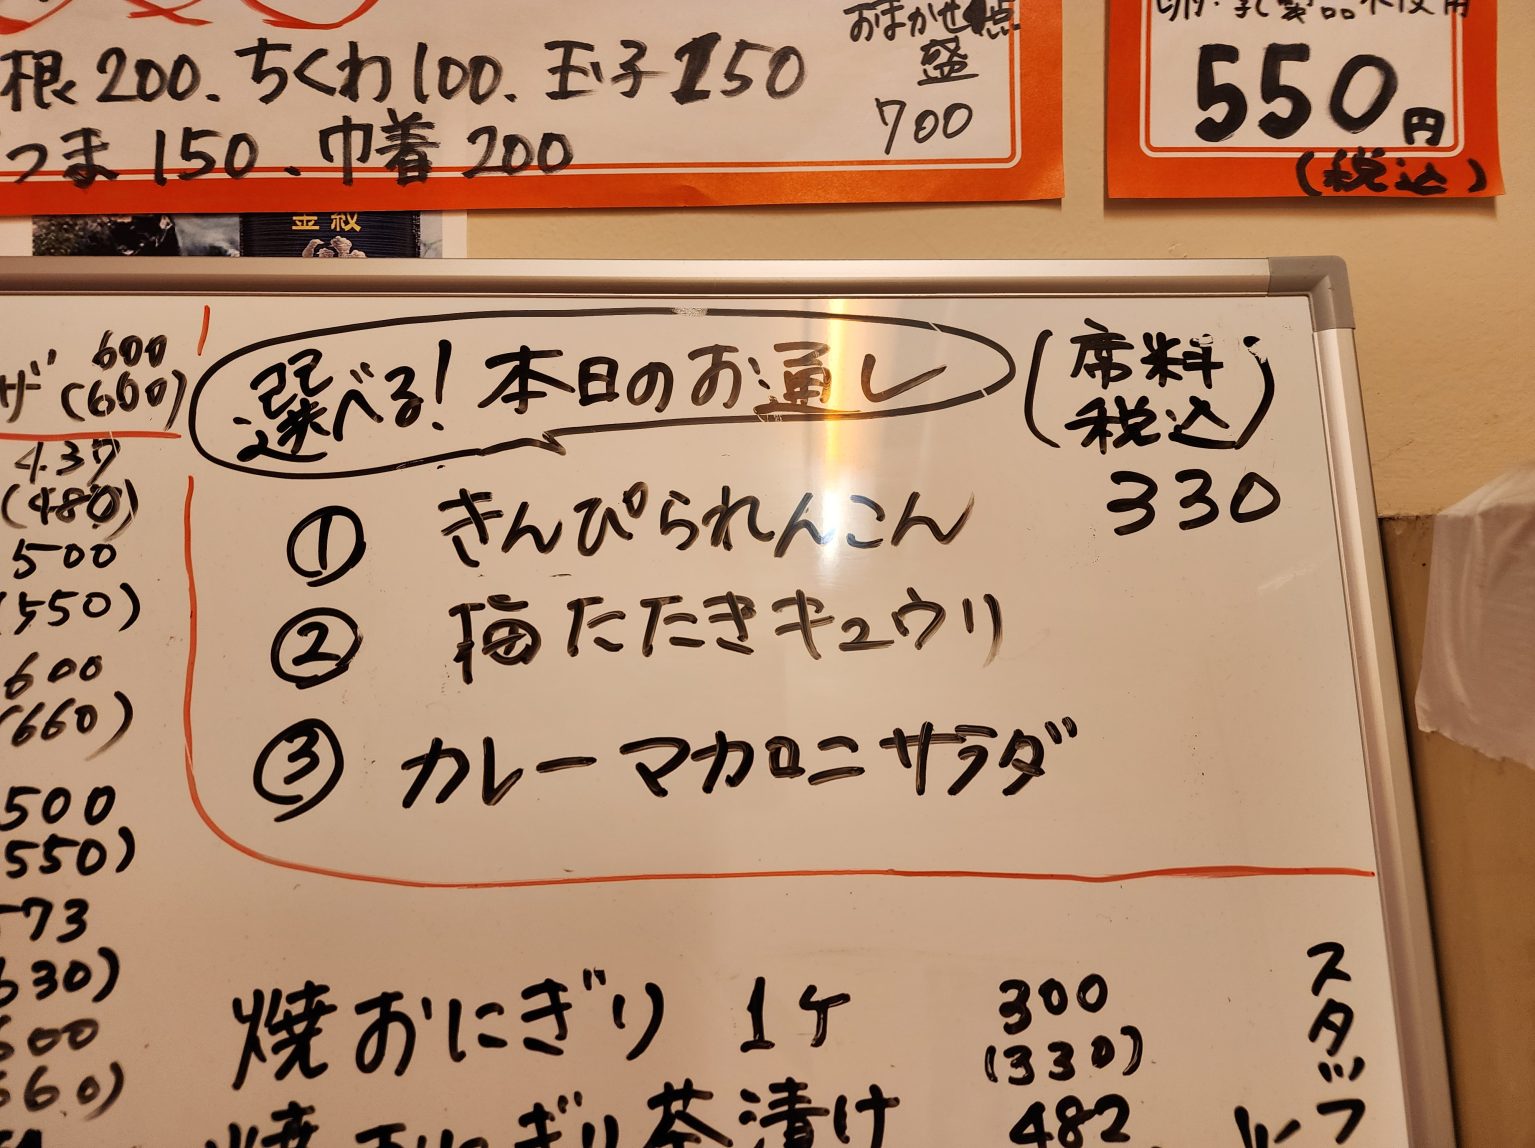 根200、ちくわ100、玉子150
つま150、巾着200
おまかせ
盛
700
550円
(税込)
金紋
600
ザ(600)
437
(480)
500
(550)
600
(660)
500
550)
73
630)
600
660)
選べる!本日のお通し
(席料
税込)
330
① きんぴられんこん
② 梅たたきキュウリ
③ カレーマカロニサラダ
焼おにぎり 1ケ 300
(330)
焼おにぎり茶漬け 482
スタッフ